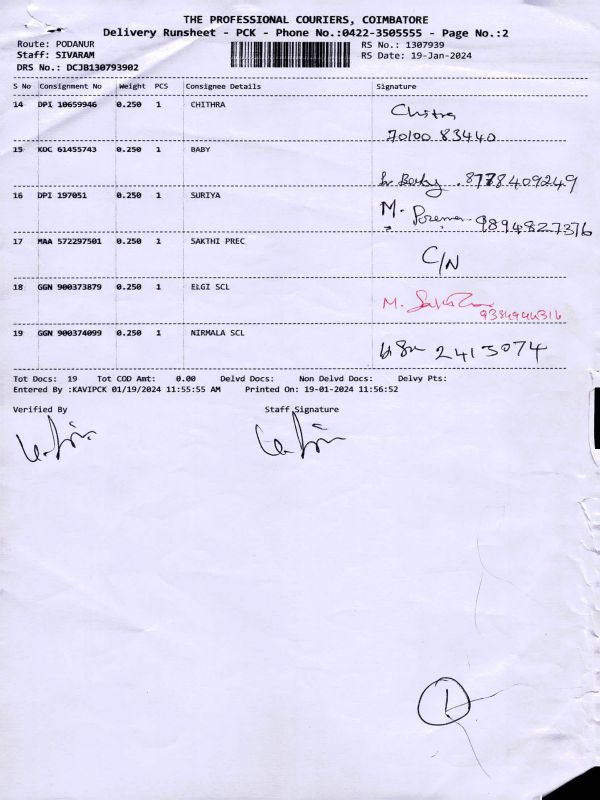 THE PROFESSIONAL COURIERS, COIMBATORE
Delivery Runsheet - PCK - Phone No.:0422-3505555 - Page No.:2
Route: PODANUR RS No.: 1307939
Staff: SIVARAM RS Date: 19-Jan-2024
DRS No.: DCJB130793902
S No Consignment No Weight PCS Consignee Details Signature
14 DPI 10659946 0.250 1 CHITHRA Chitra
70100 83440
15 KOC 61455743 0.250 1 BABY
Baby . 8778409249
16 DPI 197051 0.250 1 SURIYA M.
9894827376
17 MAA 572297501 0.250 1 SAKTHI PREC C/N
18 GGN 900373879 0.250 1 ELGI SCL M.
9384946316
19 GGN 900374099 0.250 1 NIRMALA SCL 2413074
Tot Docs: 19 Tot COD Amt: 0.00 Delvd Docs: Non Delvd Docs: Delvy Pts:
Entered By :KAVIPCK 01/19/2024 11:55:55 AM Printed On: 19-01-2024 11:56:52
Verified By Staff Signature
1